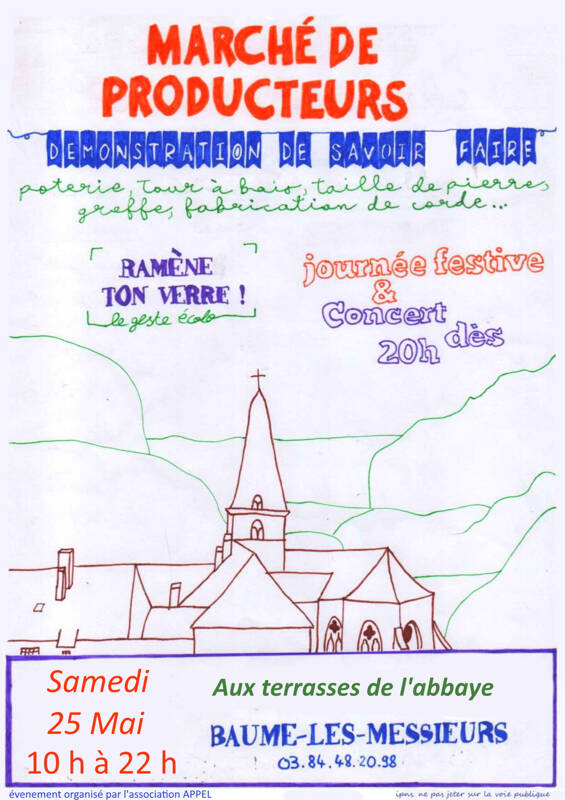 MARCHÉ DE
PRODUCTEURS
DEMONSTRATION DE SAVOIR FAIRE
poterie, tour à bois, taille de pierres,
greffe, fabrication de corde...
RAMÈNE
TON VERRE !
le geste écolo
journée festive
&
Concert dès
20h
Samedi
25 Mai
10 h à 22 h
Aux terrasses de l'abbaye
BAUME-LES-MESSIEURS
03.84.48.20.98
évenement organisé par l'association APPEL
ipns ne pas jeter sur la voie publique